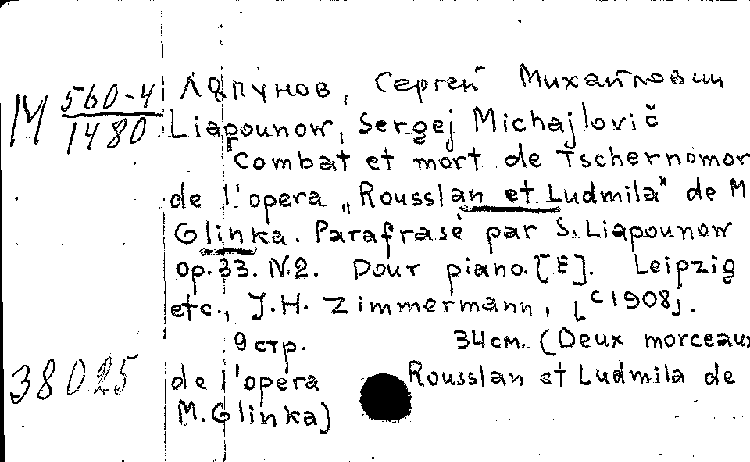 Ляпунов, Сергей Михайлович
М 560-4
1480
Liapounow, Sergej Michajlovič
Combat et mort de Tschernomor
de l'opera „Rousslan et Ludmila" de M.
Glinka. Parafrase par S. Liapounow
Op. 33. N.2. Pour piano. [E]. Leipzig
etc., J.H. Zimmermann, [c1908].
9 стр. 34 см. (Deux morceaux
38025
de l'opera Rousslan et Ludmila de
M. Glinka)